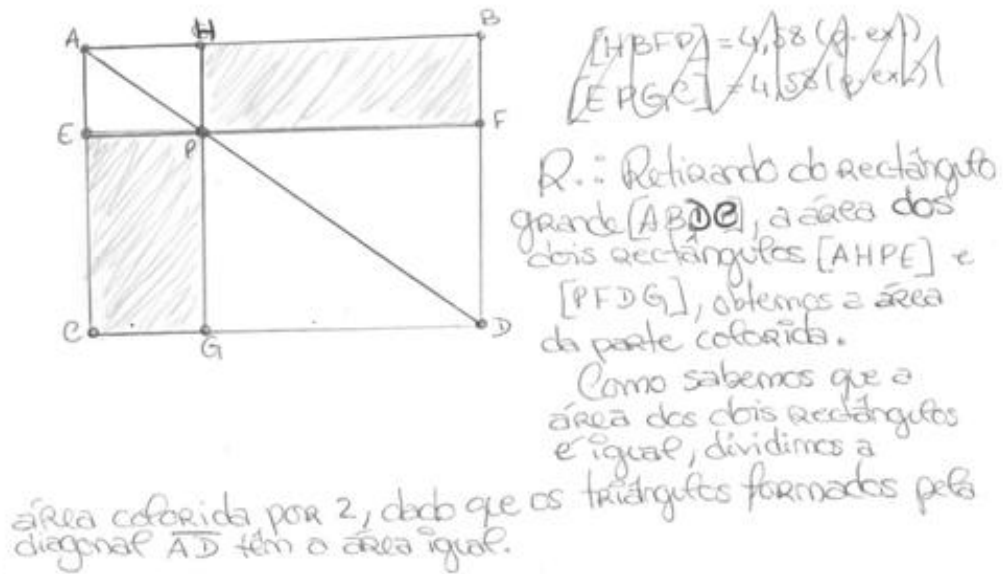 A
H
B
E
P
F
C
G
D
[HBFP] = 4,58 (p. ex.)
[EPGC] = 4,58 (p. ex.)
R.: Retirando do rectângulo
grande [ABDC], a área dos
dois rectângulos [AHPE] e
[PFDG], obtemos a área
da parte colorida.
Como sabemos que a
área dos dois rectângulos
é igual, dividimos a
área colorida por 2, dado que os triângulos formados pela
diagonal AD têm a área igual.